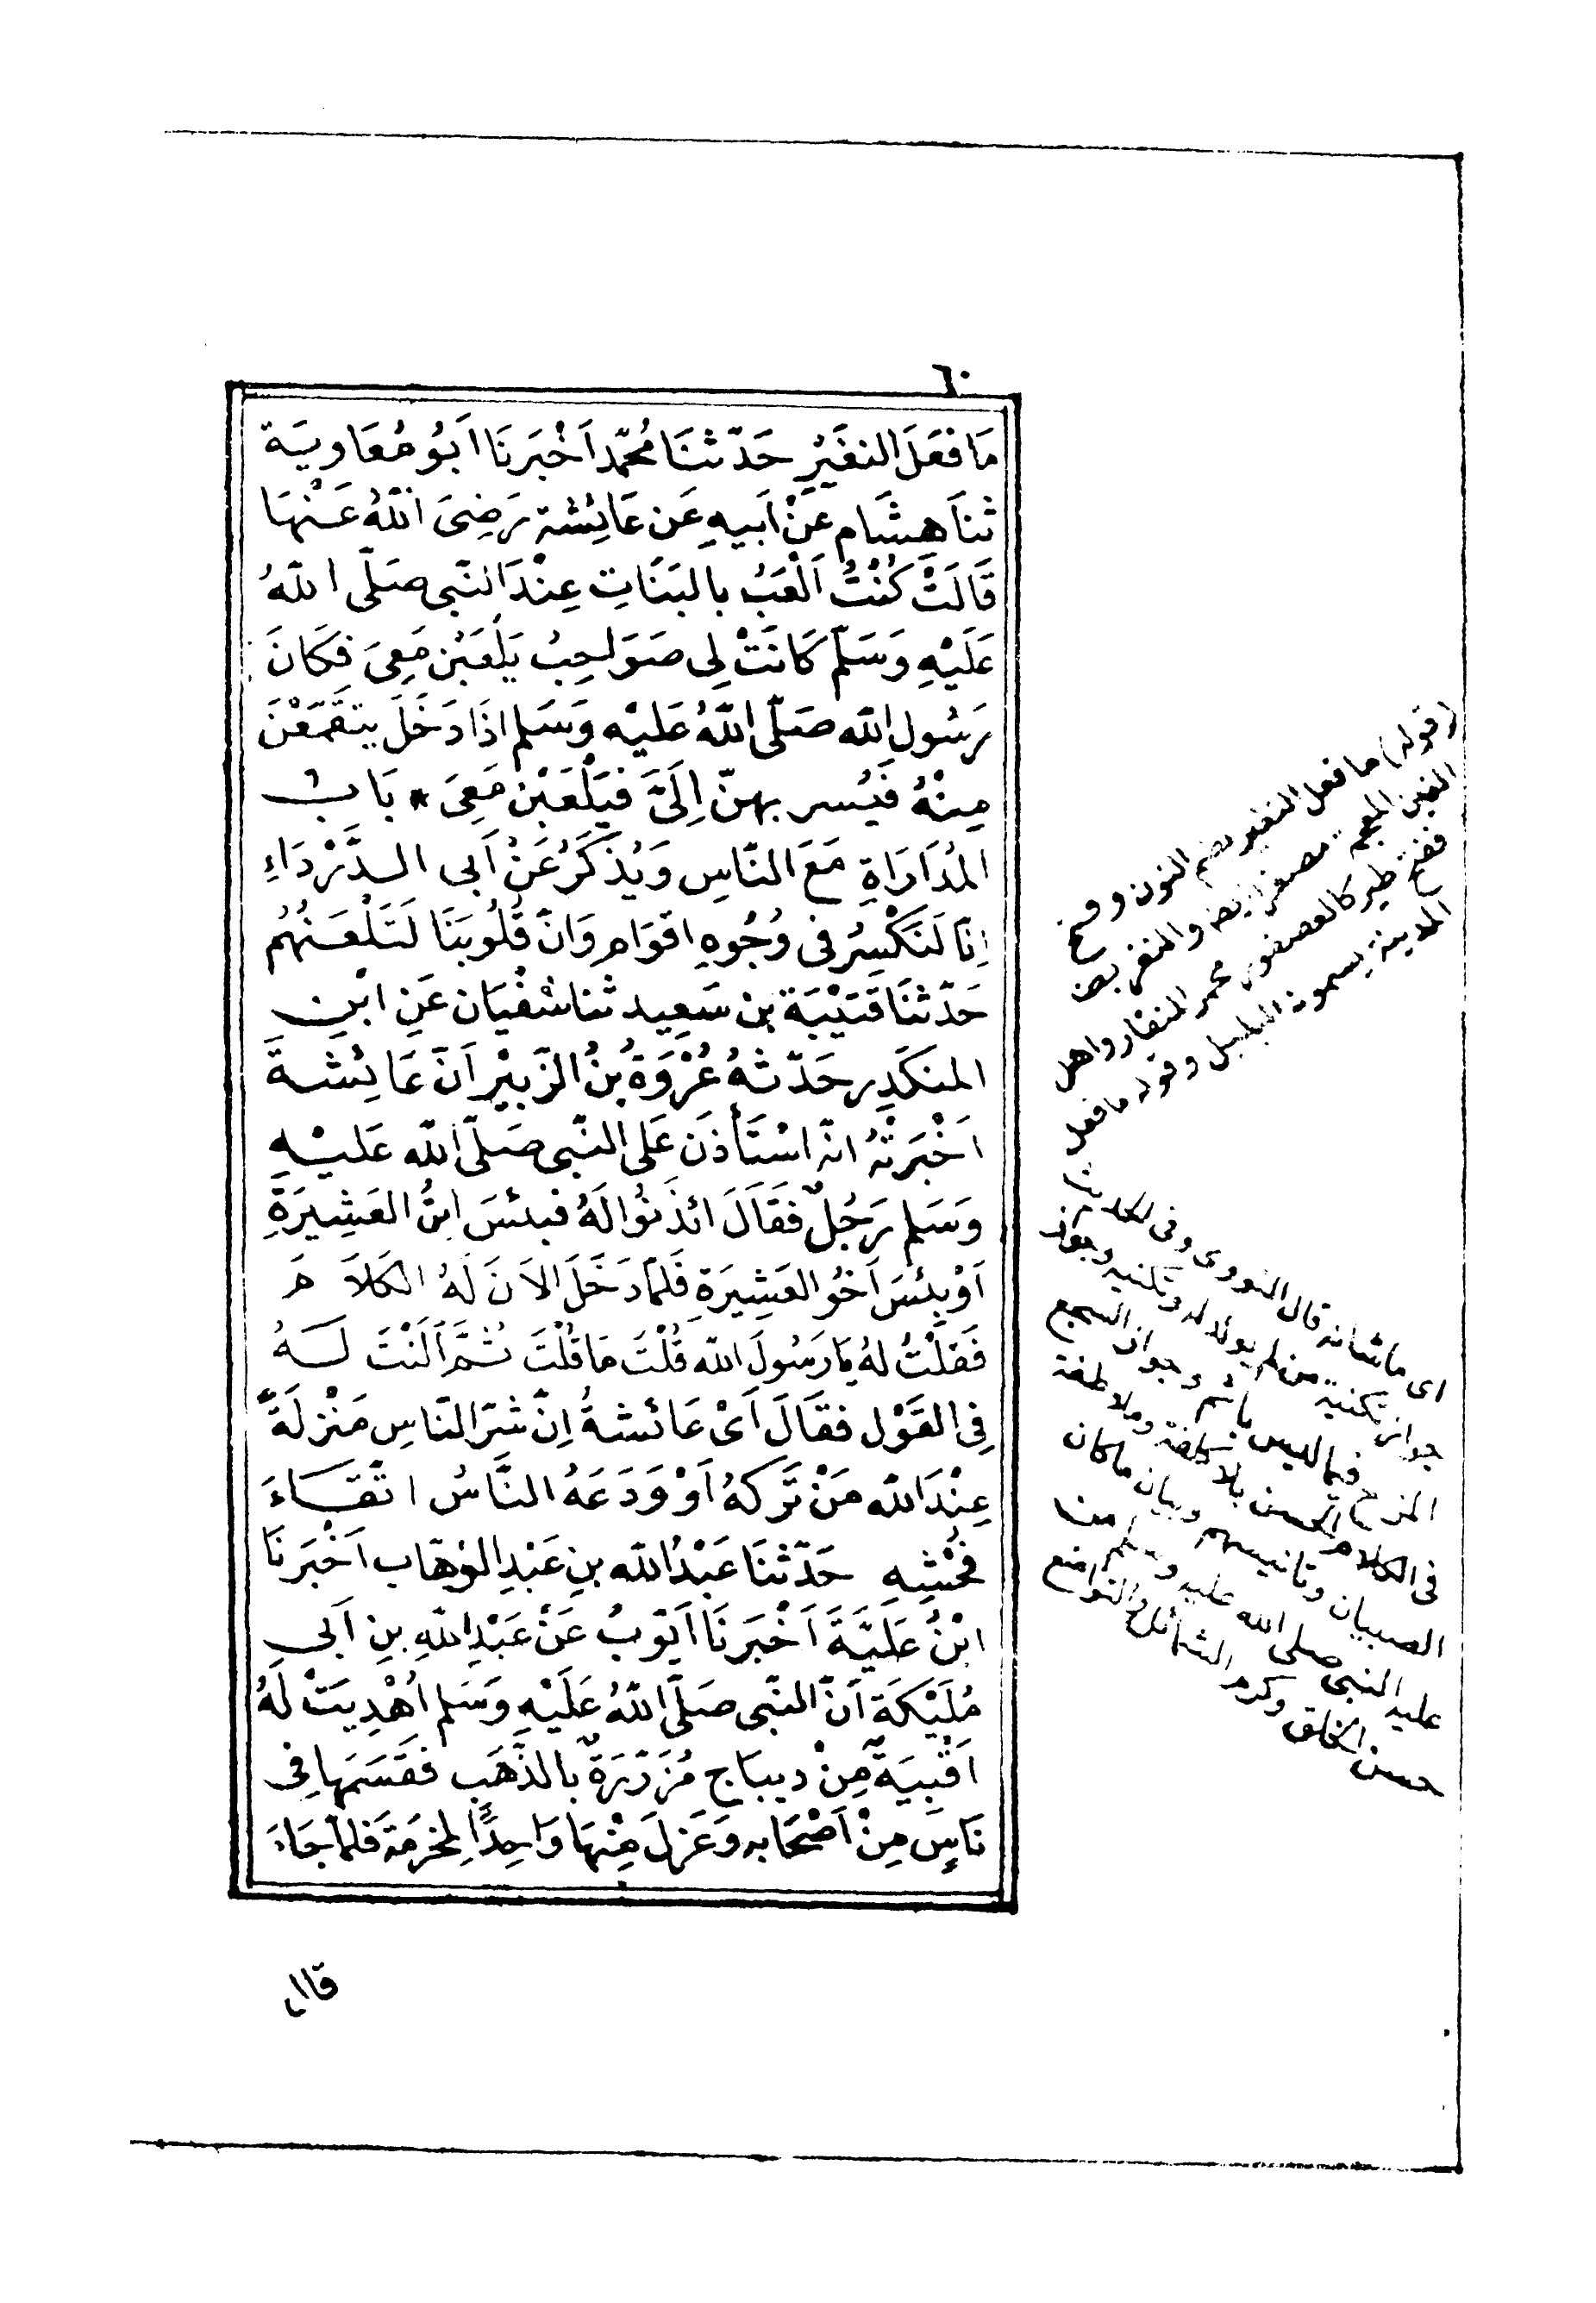 ٦٠
مَا فَعَلَ النغَيْرُ حَدّثنَا مُحَمّد اَخْبَرنَا اَبُو مُعَاوِيَة
ثنَا هِشَام عَنْ اَبيهِ عَن عَائِشة رَضِىَ اللّٰهُ عَنْهَا
قَالَتْ كُنْتُ اَلْعَبُ بالبَنَاتِ عِنْدَ النّبى صَلّى اللّٰهُ
عَلَيْهِ وَسَلّم كَانَتْ لِى صَوَاحِبُ يَلْعَبْن مَعِىَ فكَانَ
رَسُول اللّٰه صَلّى اللّٰهُ عَليْه وَسَلم اذَا دَخَلَ يتقَمّعْنَ
مِنْهُ فَيُسر بهنّ اِلَىَّ فيَلْعَبْن مَعِىَ * بَابُ
المُدَارَاةِ مَعَ النّاسِ وَيُذْكَرُ عَنْ اَبى الدَّرْدَاءِ
اِنّا لَنكْشِرُ فى وُجُوهِ اقوَامٍ وَانّ قُلُوبَنَا لَتَلْعَنُهُم
حَدّثنَا قتَيْبَة بن سَعِيد ثنا سُفْيَان عَنِ ابْنِ
المنكَدِر حَدّثهُ عُرْوَةُ بنُ الزّبيْر اَنّ عَائِشةَ
اَخْبَرتْهُ انّه اسْتَأذَن عَلى النّبى صَلّى اللّٰه عَليْهِ
وَسَلم رَجُلٌ فَقَالَ ائذَنُوا لَهُ فبئسَ ابنُ العَشِيرَةِ
اَوْ بِئسَ اَخُو العَشِيرَةِ فَلمّا دَخَلَ الاَنَ لَهُ الكَلاَمَ
فَقلْتُ لهُ يَا رَسُولَ اللّٰه قُلْتَ مَا قُلْتَ ثُمَّ اَلَنْتَ لَهُ
فِى القَوْل فقَالَ اَىْ عَائشةُ اِنّ شَرّ النّاسِ مَنْزلَةً
عِنْدَ اللّٰه مَنْ تَركهُ اَوْ وَدَعَهُ النَّاسُ اتّقَاءَ
فُحْشِهِ حَدّثنَا عَبْدُ اللّٰه بنِ عَبْدِ الوَهّاب اَخْبَرنَا
ابْنُ عَليَّةَ اَخْبَرنَا اَيّوبُ عَنْ عَبْدِ اللّٰهِ بنِ اَبى
مُلَيْكَة اَنّ النّبى صَلّى اللّٰهُ عَلَيْهِ وَسَلم اُهْدِيَتْ لَهُ
اقْبِيَةٌ مِنْ ديبَاج مُزَرّرَةٌ بالذّهَب فقَسَمَهَا فِى
نَاسٍ مِنْ اَصْحَابه وَعَزلَ مِنْهَا وَاحِدًا لمخرَمَة فَلمّا جَاءَ
(قوله) ما فعل النغير بضم النون وفتح
الغين المعجمة مصغر نغر والنغر بضم
ففتح طير كالعصفور محمر المنقار واهل
المدينة يسمونه البلبل وقوله ما فعل
اى ما شانه قال النووى وفى الحديث
جواز تكنية من لم يولد له وتكنيه وجواز
المزح فيما ليس باثم وجواز السجع
فى الكلام الحسن بلا كلفة وملاطفة
الصبيان وتانيسهم وبيان ما كان
عليه النبى صلى الله عليه وسلم من
حسن الخلق وكرم الشمائل والتواضع
قال